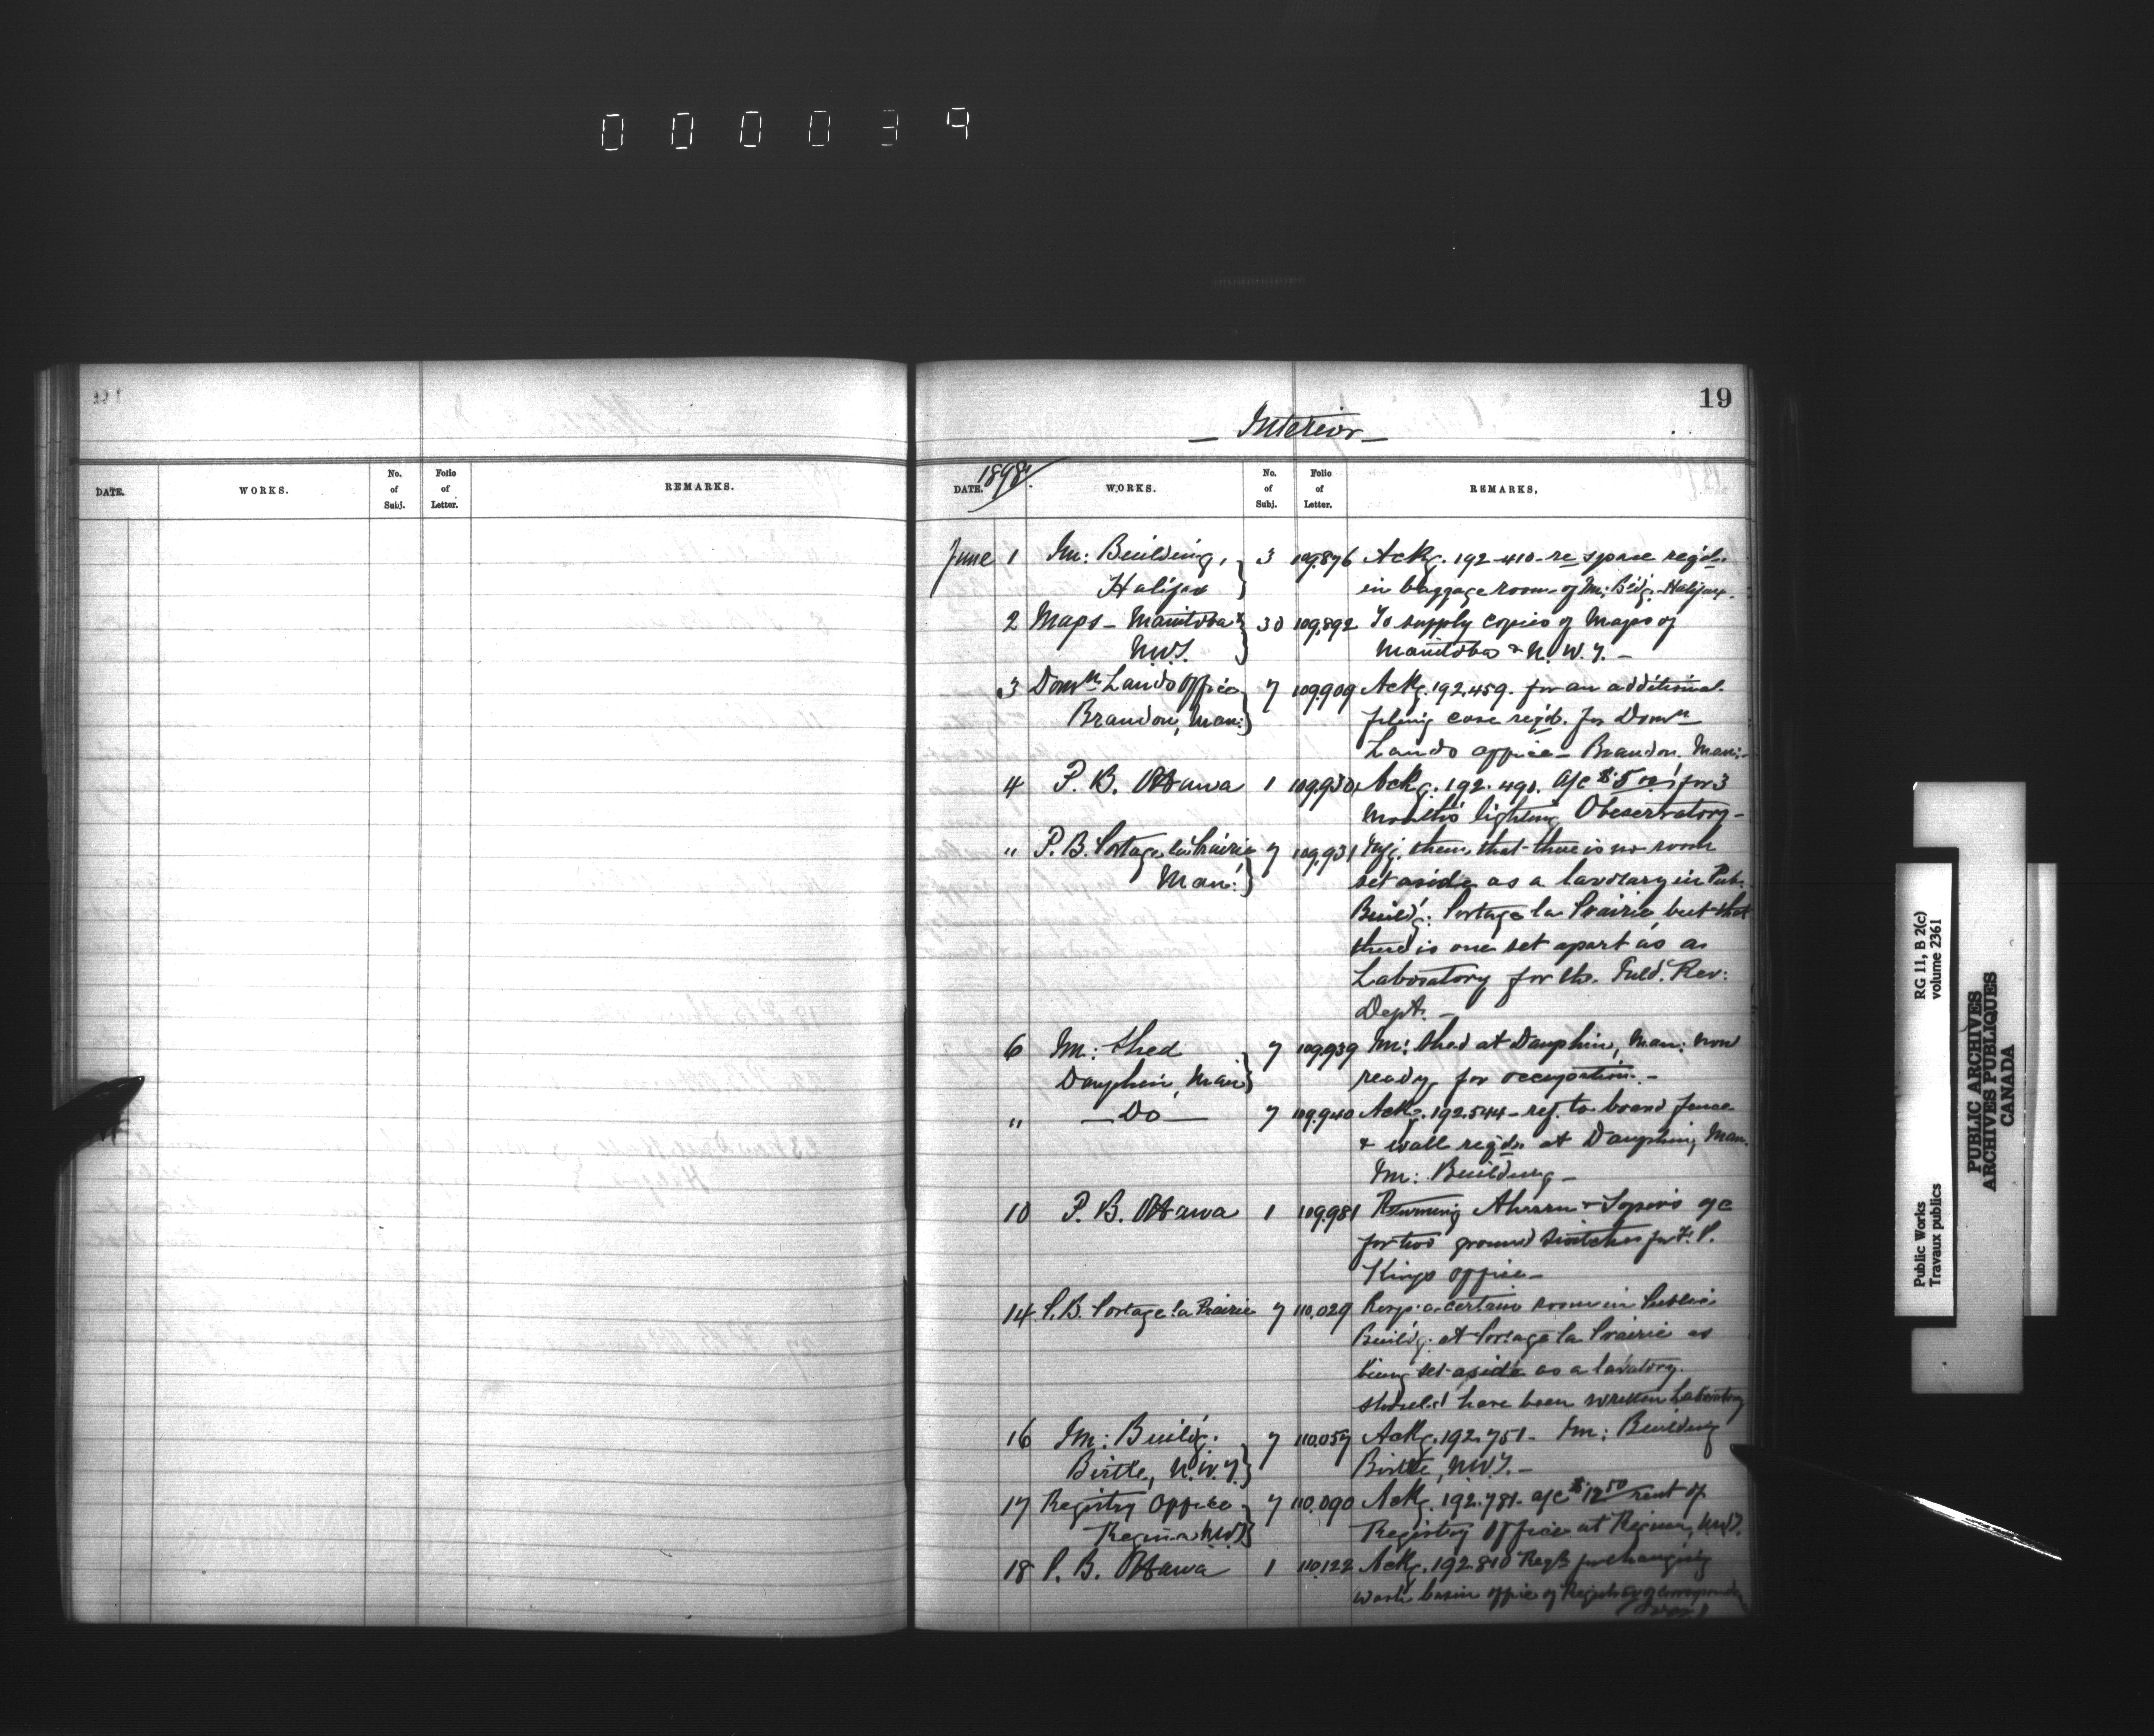 000039
19
— Interior —
DATE. WORKS. No. of Subj. Folio of Letter. REMARKS.
1898
DATE. WORKS. No. of Subj. Folio of Letter. REMARKS.
June 1 Im: Building, 3 109,876 Ackg. 192-410- re space reqd.
Halifax in baggage room of Im: B'dg. Halifax.
2 Maps - Manitoba & 30 109,892 To supply copies of Maps of
N.W.T. Manitoba & N.W.T. —
3 Domn. Lands Office 7 109,909 Ackg. 192,459. for an additional
Brandon, Man: filing case reqd. for Domn
Lands Office - Brandon. Man: -
4 P. B. Ottawa 1 109,930 Ackg. 192.491. a/c $5.00 for 3
months lighting Observatory -
" P. B. Portage la Prairie 7 109,931 Infg. them that there is no room
Man: set aside as a lavatory in Pub.
Build'g. Portage la Prairie but that
there is one set apart as a
Laboratory for the Inld. Rev:
Dept. —
6 Im: Shed 7 109,939 Im: Shed at Dauphin, Man: now
Dauphin, Man: ready for occupation. —
" — Do — 7 109,940 Ackg. 192.544 - ref. to board fence
& wall reqd. at Dauphin, Man.
Im: Building —
10 P. B. Ottawa 1 109,981 Returning Ahearn & Soper's a/c
for two ground switches for
Kings office —
14 P. B. Portage la Prairie 7 110,029 a certain room in Public
Build'g. at Portage la Prairie as
being set aside as a lavatory.
should have been written Laboratory
16 Im: Build'g. 7 110,057 Ackg. 192.751. Im: Building
Birtle, N.W.T. Birtle, N.W.T. —
17 Registry Office 7 110,090 Ackg. 192.781. a/c $12.50 rent of
Regina N.W.T. Registry Office at Regina, N.W.T.
18 P. B. Ottawa 1 110,122 Ackg. 192.810 for changing
wash basin office of Registrar of
RG 11, B 2(c)
volume 2361
Public Works
Travaux publics
PUBLIC ARCHIVES
ARCHIVES PUBLIQUES
CANADA